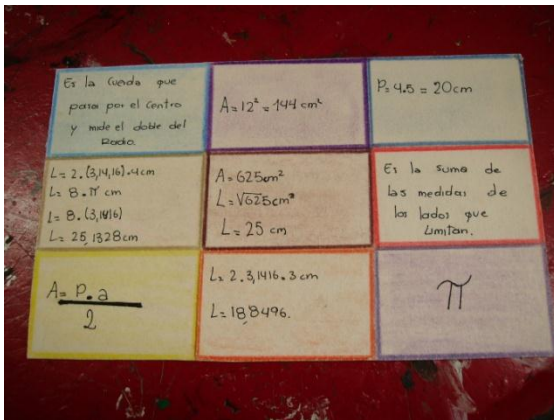 Es la Cuerda que
pasa por el Centro
y mide el doble del
Radio.
A= 12² = 144 cm²
P= 4.5 = 20cm
L= 2.(3,14,16).4cm
L= 8.π cm
L= 8.(3,1416)
L= 25,1328cm
A= 625cm²
L= √625cm²
L= 25 cm
Es la suma de
las medidas de
los lados que
Limitan.
A= P.a
2
L= 2.3,1416.3cm
L= 18,8496.
π